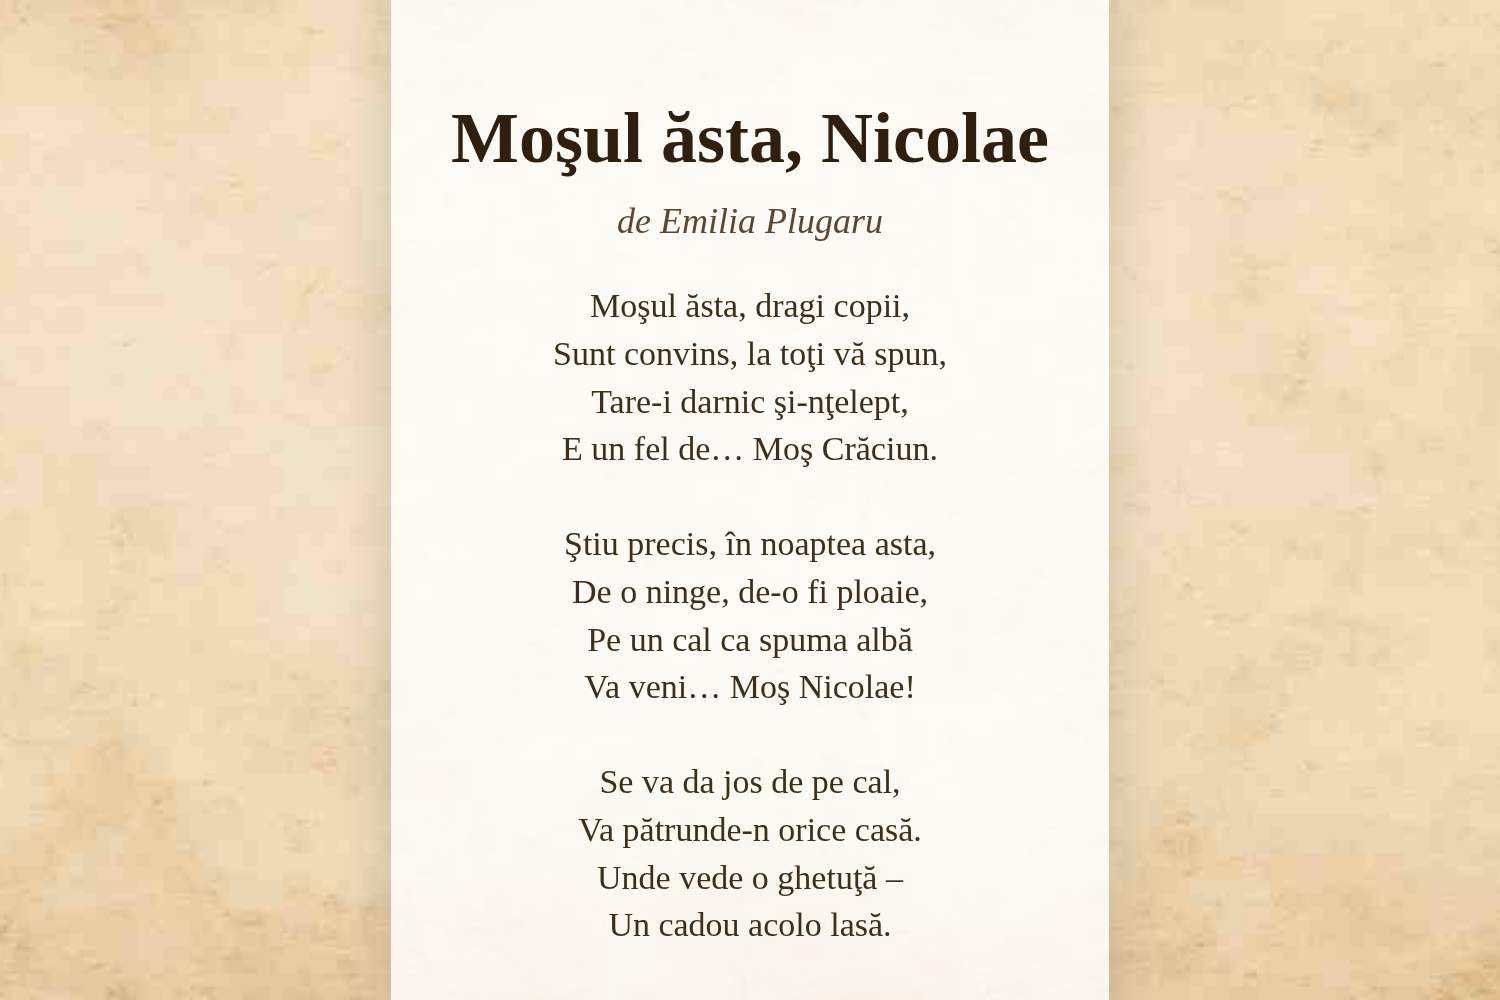 Moşul ăsta, Nicolae
de Emilia Plugaru
Moşul ăsta, dragi copii,
Sunt convins, la toţi vă spun,
Tare-i darnic şi-nţelept,
E un fel de… Moş Crăciun.
Ştiu precis, în noaptea asta,
De o ninge, de-o fi ploaie,
Pe un cal ca spuma albă
Va veni… Moş Nicolae!
Se va da jos de pe cal,
Va pătrunde-n orice casă.
Unde vede o ghetuţă –
Un cadou acolo lasă.